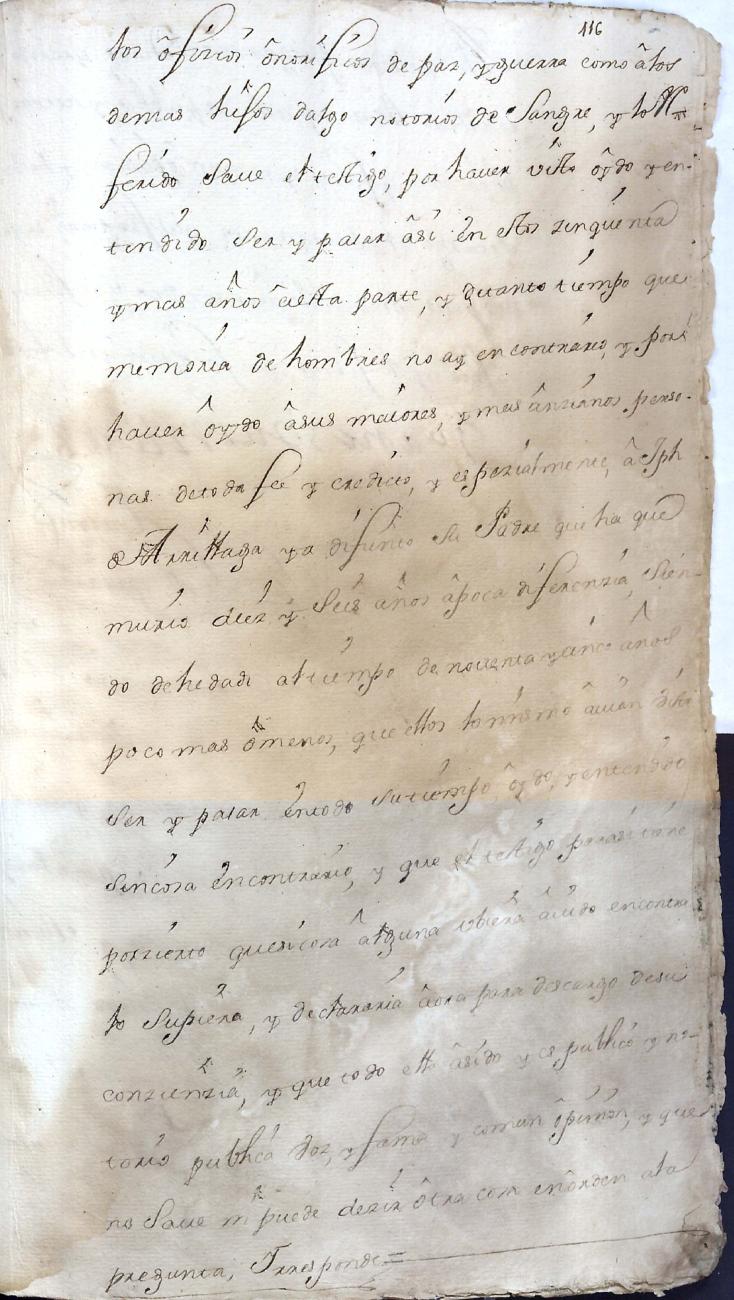 116
los ôficios ônorificos de paz, y guerra como âlos
demas hijos dalgo notorios de Sangre, y lo Re-
ferido Save el testigo, por haver visto oydo y en-
tendido ser y pasar âsi en estos zinquenta
y mas años âesta parte, y de tanto tiempo que
memoria de hombres no ay en contrario, y por
haver ôydo âsus maiores, y mas ânzianos perso-
nas de toda fee y credito, y espezialmente, â Jph
de Arrillaga ya difunto su Padre que ha que
murio diez y Seis años âpoca diferenzia, Sien-
do de hedad al tiempo de noventa y cinco años
poco mas ômenos, que ellos lo mismo âvian visto
ser y pasar en todo su tiempo ôydo, y entendido
sin cosa en contrario, y que el testigo para si tiene
por zierto que si cosa âlguna ubiera âvido en contra
lo supiera, y declararia âora para descargo de su
conzienzia, y que todo ello âsido y es publico y no-
torio publica voz, y fama y comun ôpinion, y que
no Save ni puede dezir ôtra cosa en ôrden ala
pregunta, Y responde =